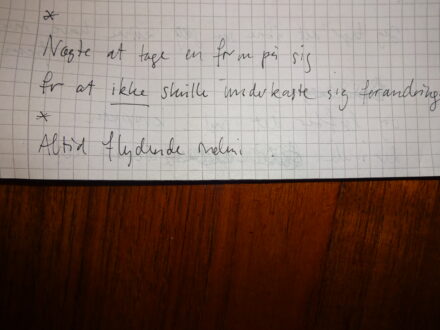 *
Nægte at tage en form på sig
for at ikke skulle underkaste sig forandring
*
Altid flydende